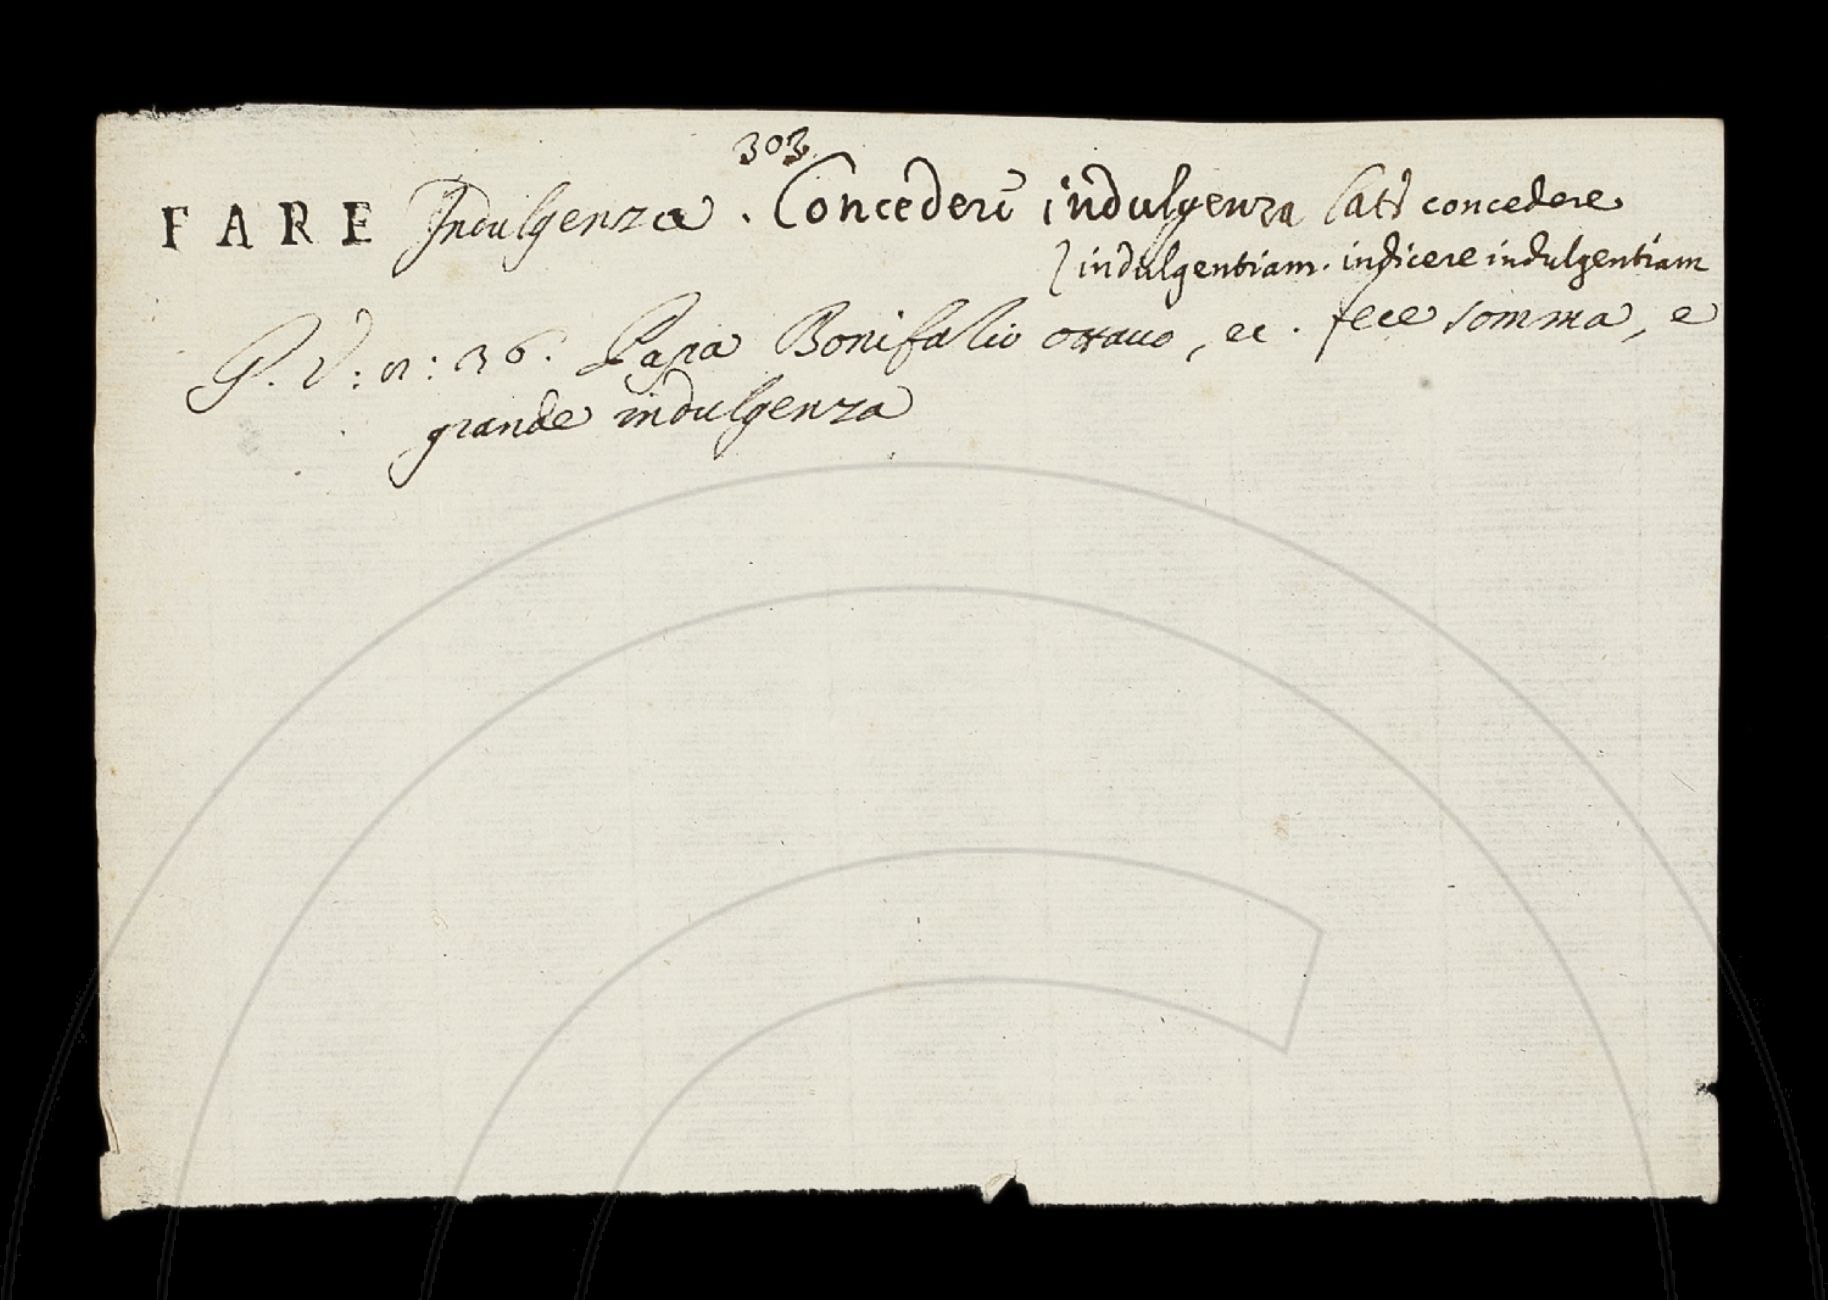 303.
FARE Indulgenza. Concedere indulgenza Lat. concedere
indulgentiam. indicere indulgentiam
G. V: n: 36. Papa Bonifazio ottavo, ec. fece somma, e
grande indulgenza